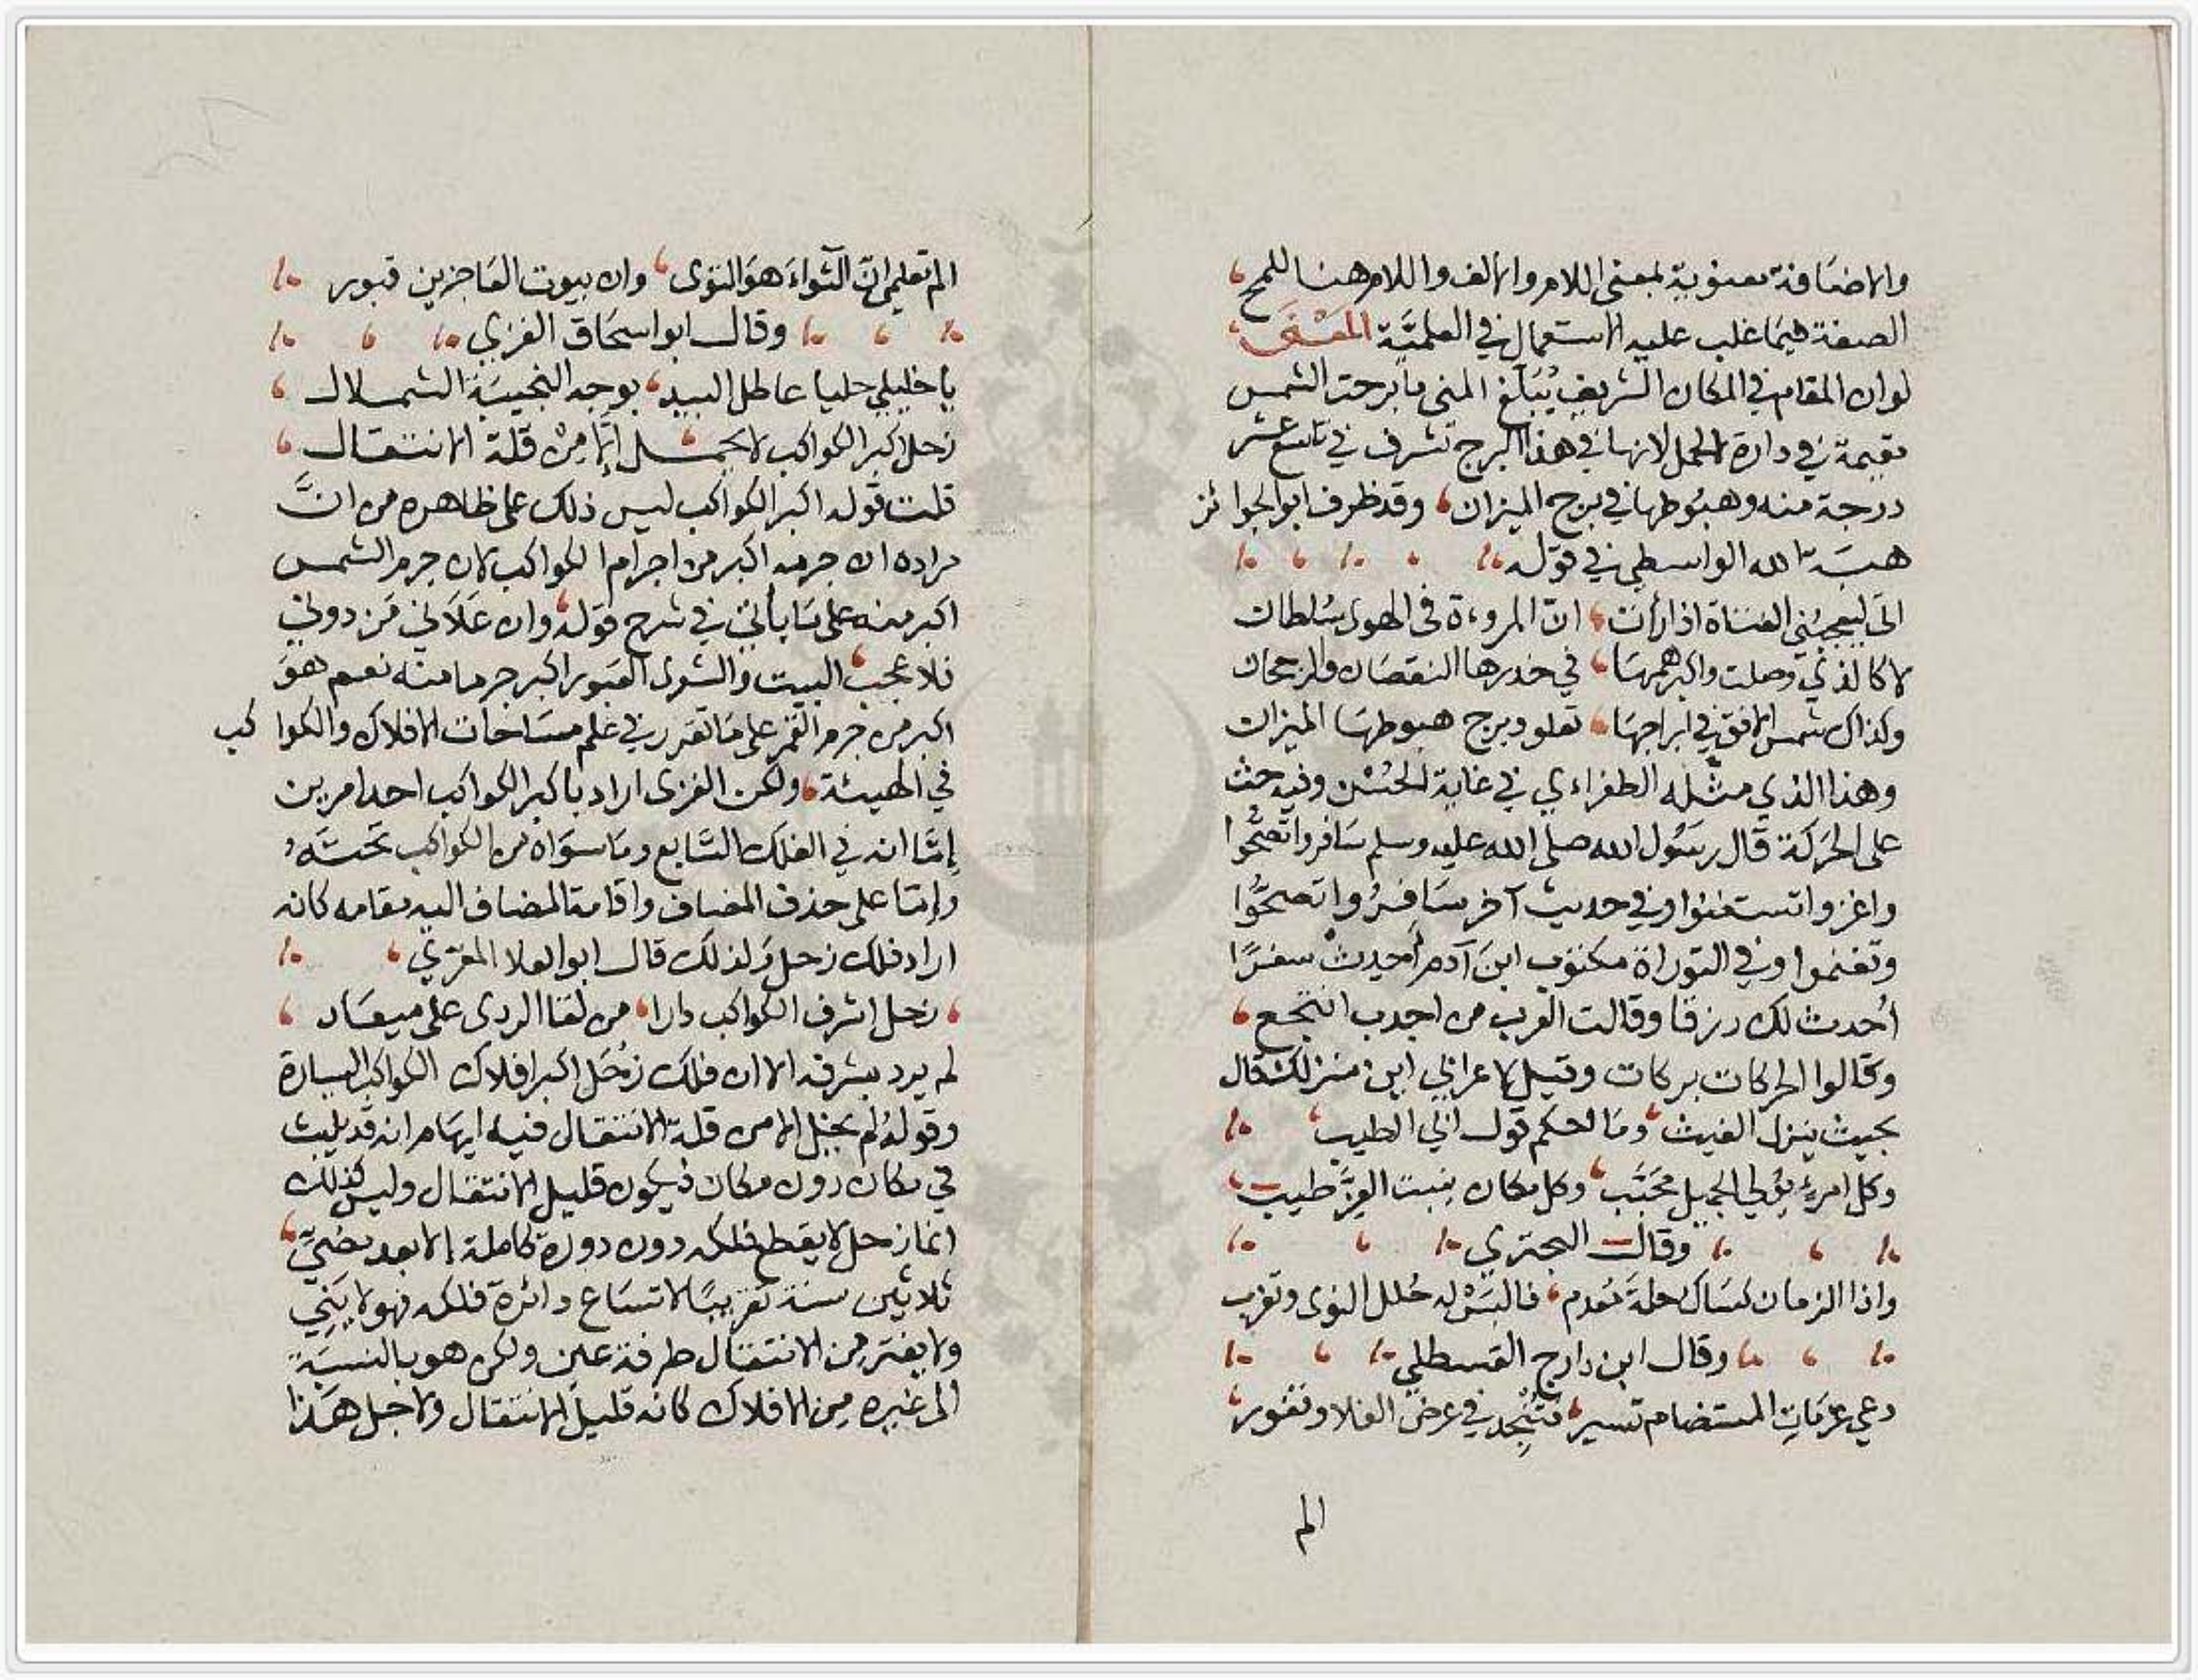 والاضافة معنوية بمعنى اللام والالف واللام هنا للمح
الصفة فيما غلب عليه الاستعمال في العلمية المعنى
لو ان المقام في المكان الشريف يُبَلّغ المنى ما برحت الشمس
مقيمة في دارة الحمل لانها في هذا البرج تشرف في تاسع عشر
درجة منه وهبوطها في برج الميزان، وقد ظرف ابو الجوائز
هبة الله الواسطي في قوله
انى ليعجبني الفتاة اذا رأت، انّ المروءة في الهوى سُلطان
لا كالذي وصلت واكبر همها، في خدرها النقصان والرجحان
وكذاك شمس الافق في ابراجها، تعلو وبرج هبوطها الميزان
وهذا الذي مثله الطغراءي في غاية الحُسْن وفيه حث
على الحركة قال رسُول الله صلى الله عليه وسلم سَافروا تصحُّوا
واغزوا تستغنوا وفي حديث آخر سَافرُوا تصحُّوا
وتغنموا وفي التوراة مكتوب ابنَ آدم اَحدِث سفرًا
اُحدث لك رزقا وقالت العرب من اجدب انتجع،
وقالوا الحركات بركات وقيل لاعرابي اين منزلك قال
بحيث ينزل الغيث، ومَا احكم قول ابي الطيب،
وكل امرءٍ يُولي الجميل محَبَّب، وكل مكان ينبت العِزَّ طيب،
وقال البحتري
واذا الزمان كسَاك حلةَ مُعدم، فالبَسْ له حُلل النوى وتغرب
وقال ابن دارج القسطلي
دعي عزمَاتِ المستضام تسير، فتُنْجِد في عرض الفلا وتغور،
الم
الم تعلمي انّ الثواءَ هوَ التوى، وان بيوت العَاجزين قبور
وقال ابو اسحَاق الغزي
يا خليلي حليا عاطل البيد، بوجه النجيبَة الشملال،
زحل اكبر الكواكب لا يخمل، إلّا مِنْ قلة الانتقال،
قلت قوله اكبر الكواكب ليس ذلك على ظاهره من انَّ
مراده ان جرمه اكبر من اجرام الكواكب لان جرم الشمس
اكبر منه على مَا يأتي في شرح قوله، وان عَلَاني مَن دوني
فلا عجب، البيت والشعرى العَبور اكبر جرما منه نعم هوَ
اكبر من جرم القمر على مَا تقرر في علم مسَاحَات الافلاك والكواكب
في الهيئة، ولكن الغزى اراد باكبر الكواكب احد امرين
إمَّا انه في الفلك السَّابع ومَا سوَاه من الكواكب تحتَه،
وإمّا على حذف المضاف واقامة المضاف اليه مقامه كانه
اراد فلك زحل وَلذلك قال ابو العلا المعرّي،
، زحل اشرف الكواكب دارا، من لقا الردى على ميعَاد،
لم يرد بشرفه الا ان فلك زُحَل اكبر افلاك الكواكب السيارة
وقولهُ لم يخمل الا من قلة الانتقال فيه ايهَام انه قد يلبث
في مكان دون مكان فيكون قليل الانتقال وليس كذلك
انما زحل لا يقطع فلكه دون دورة كاملة إلا بعد مضيِّ،
ثلاثين سنة تقريبًا لاتسَاع دائرة فلكه فهو لا يَنِي
ولا يفتر من الانتقال طرفة عين ولكن هو بالنسبَة
الى غيره مِن الافلاك كانه قليل الانتقال ولاجل هَذا